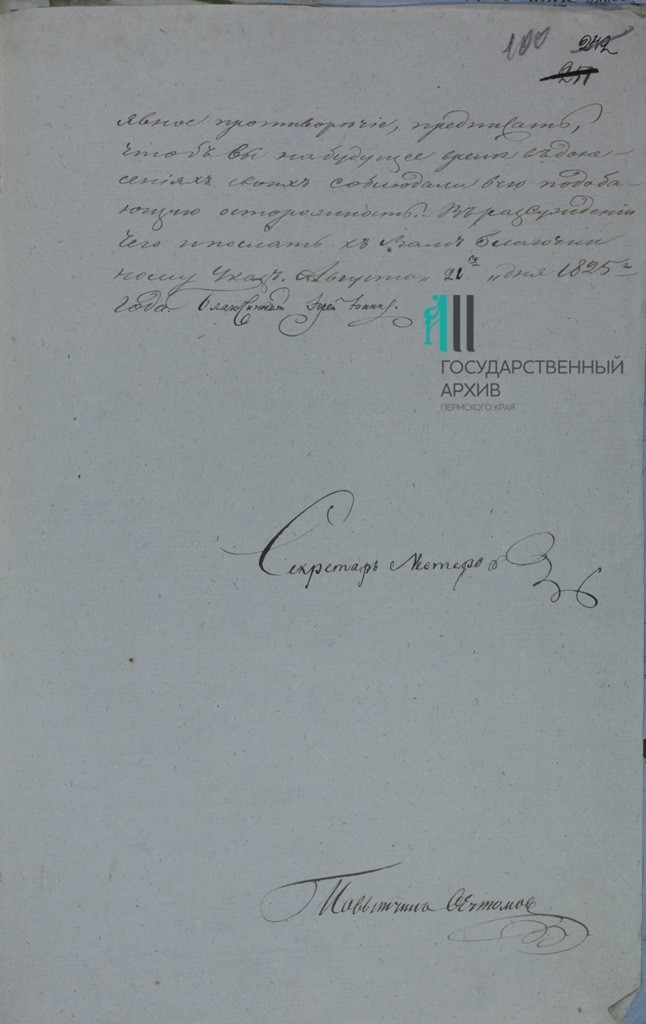 100 242
211
явное противорѣчіе, предписать,
чтобъ вы набудущее время вѣдоне-
сеніяхъ своихъ соблюдали всю подоба-
ющую осторожность. Въ разсужденіи
чего и послать къ Вамъ благочин
ному Указъ. Августа „21го„ дня 1825го
года. Іерей Іоаннъ.
ГОСУДАРСТВЕННЫЙ
АРХИВ
ПЕРМСКОГО КРАЯ
Секретарь
Повытчикъ